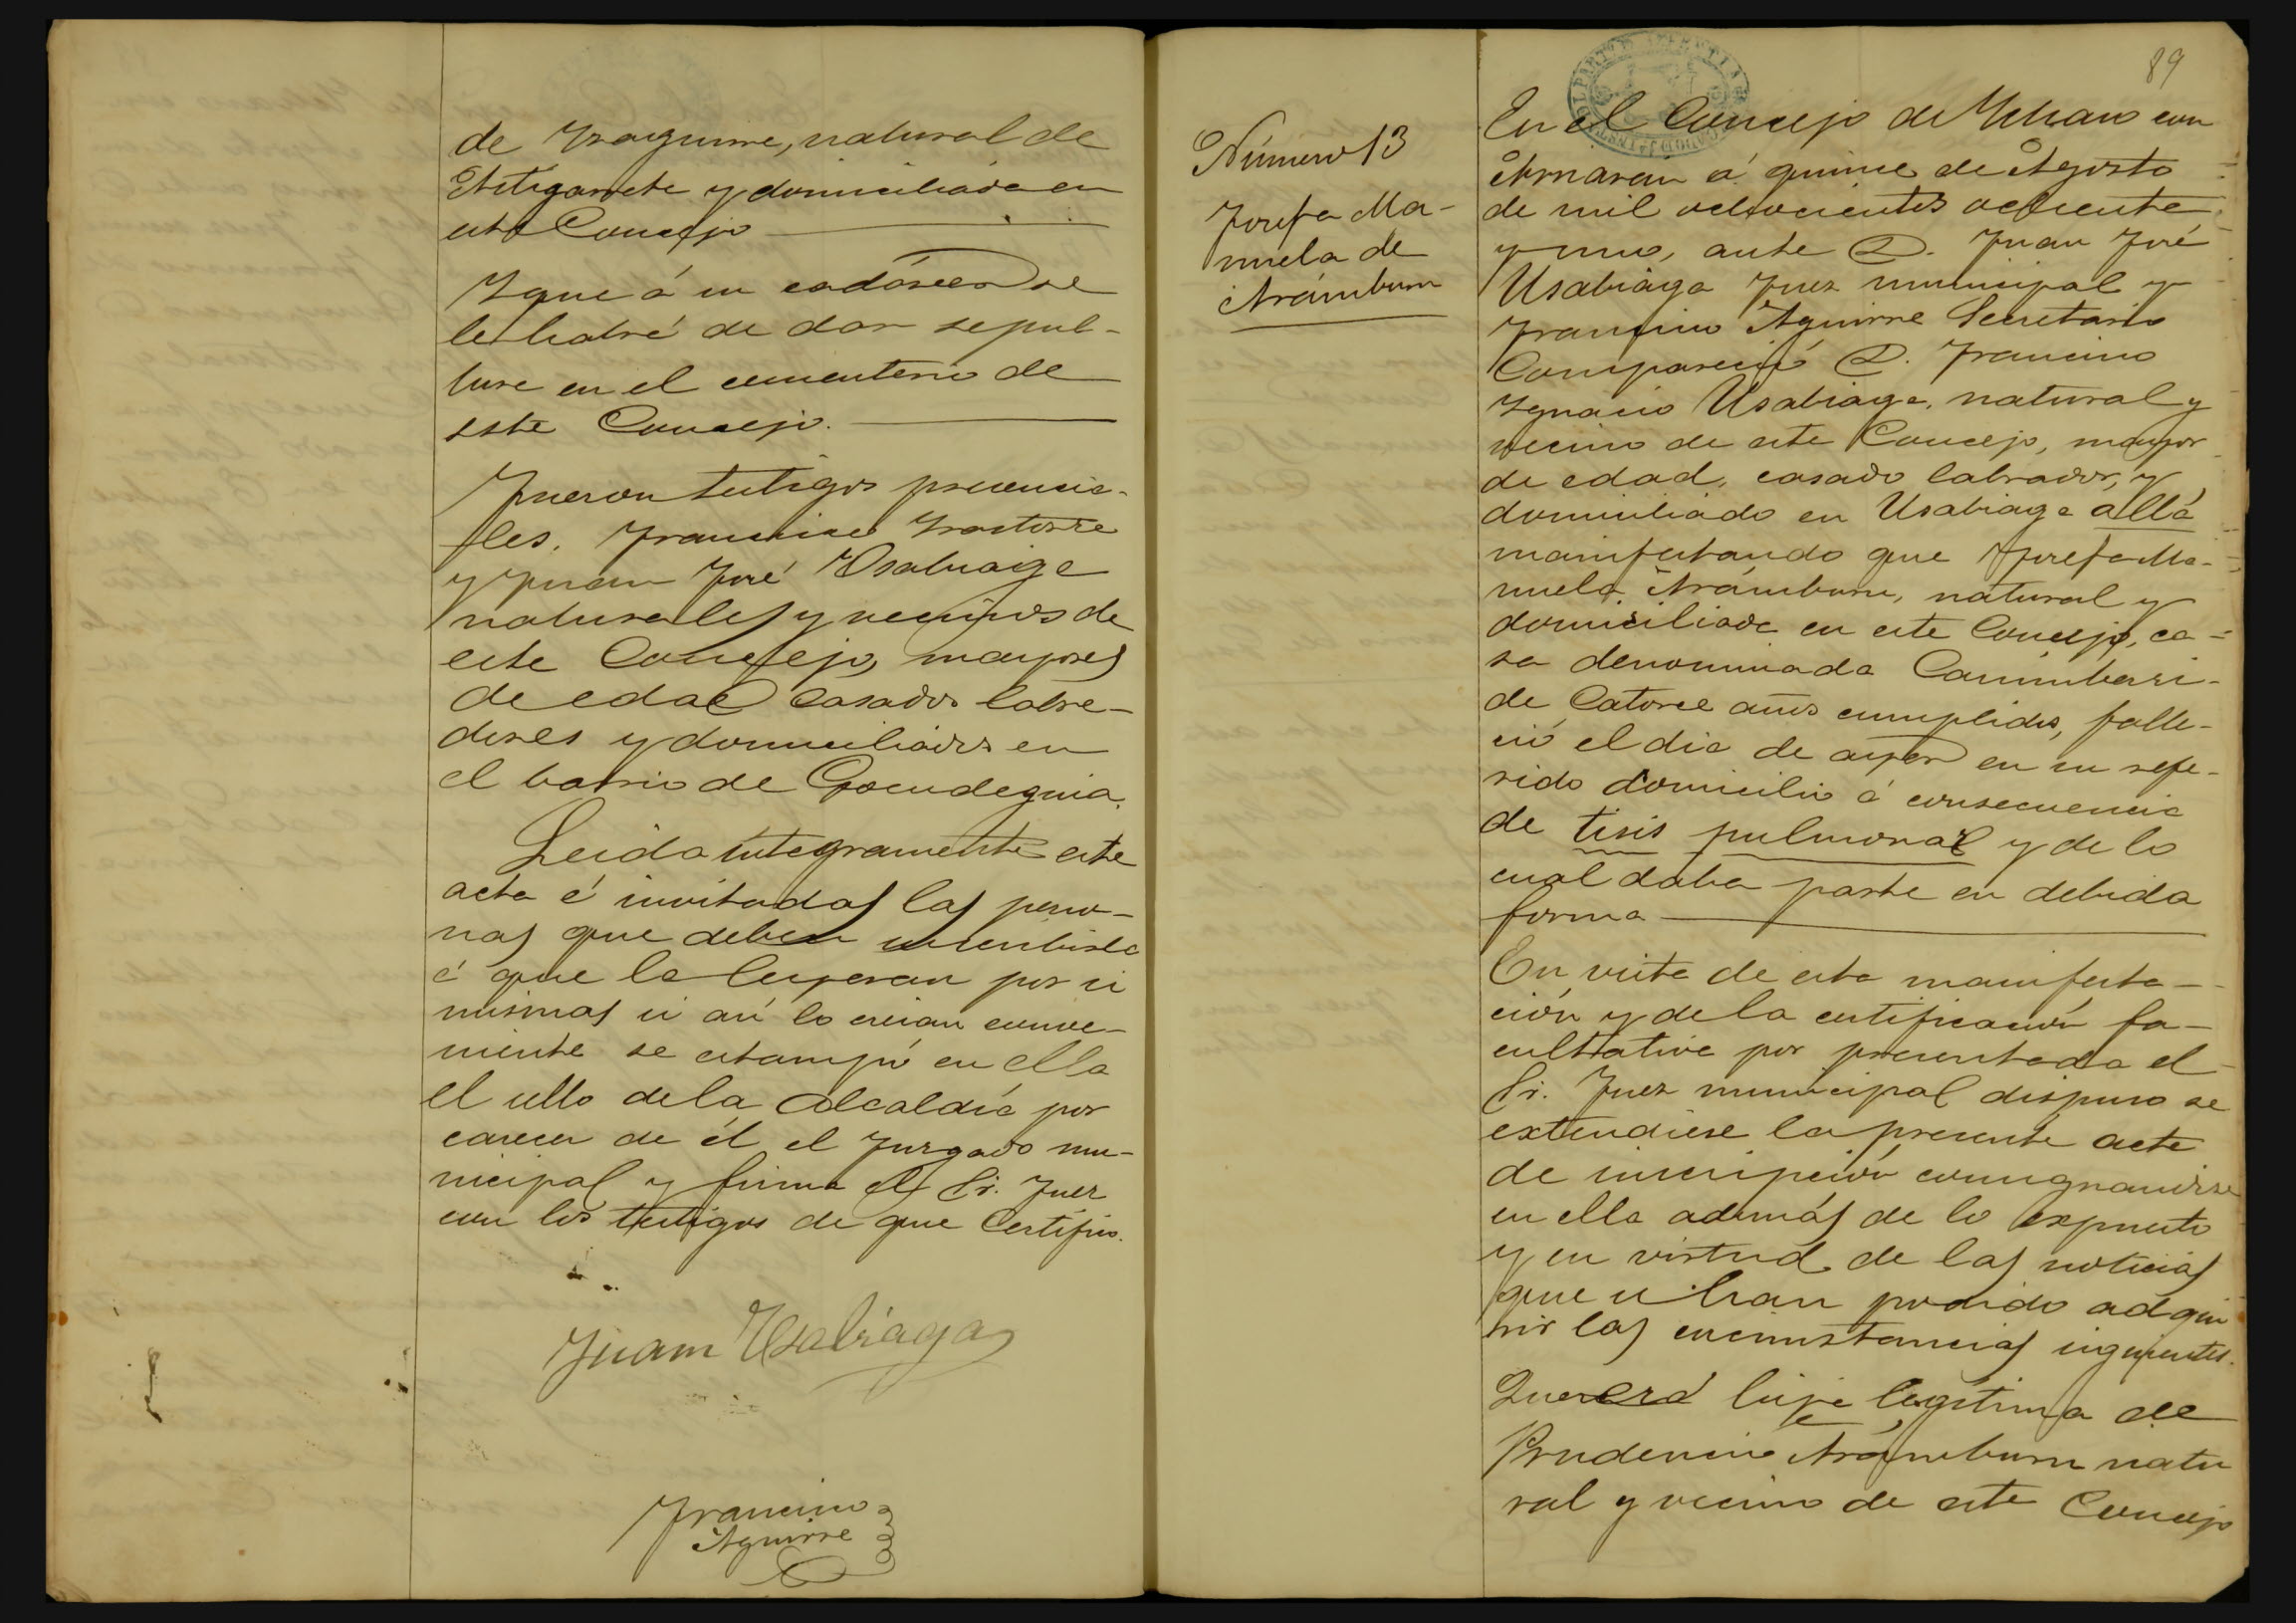 de Izaguirre, natural de
Astigarreta y domiciliada en
este Concejo
Y que á su cadáver se
le habrá de dar sepul-
tura en el cementerio de
este Concejo.
Fueron testigos presencia-
les, Francisco Irastorza
y Juan José Usabiaga
naturales y vecinos de
este Concejo, mayores
de edad casados labra-
dores y domiciliados en
el barrio de Goendeguia.
Leida integramente este
acta é invitadas las perso-
nas que deben suscribirla
á que la leyeran por si
mismas si así lo creian conve-
niente se estampó en ella
el sello de la Alcaldía por
carecer de él el Juzgado mu-
nicipal y firma el Sr. Juez
con los testigos de que Certifico.
Juam Usabiaga
Francisco
Aguirre
89
Número 13
Josefa Ma-
nuela de
Arámburu
En el Concejo de con
á quince de Agosto
de mil ochocientos ochenta
y uno, ante D. Juan José
Usabiaga Juez municipal y
Francisco Aguirre Secretario
Compareció D. Francisco
Ygnacio Usabiaga, natural y
vecino de este Concejo, mayor
de edad, casado labrador, y
domiciliado en Usabiaga allá
manifestando que Josefa Ma-
nuela Arámburu, natural y
domiciliada en este Concejo, ca-
sa denominada
de Catorce años cumplidos, falle-
ció el dia de ayer en su refe-
rido domicilio á consecuencia
de tisis pulmonal y de lo
cual daba parte en debida
forma
En vista de esta manifesta-
ción y de la certificación fa-
cultative por presentada el
Sr. Juez municipal dispuso se
extendiese la presente acta
de inscripción consignandose
en ella además de lo expuesto
y en virtud de las noticias
que se han podido adqui
rir las circunstancias siguientes.
Que era hija legítima de
Prudencio Arámburu natu
ral y vecino de este Concejo